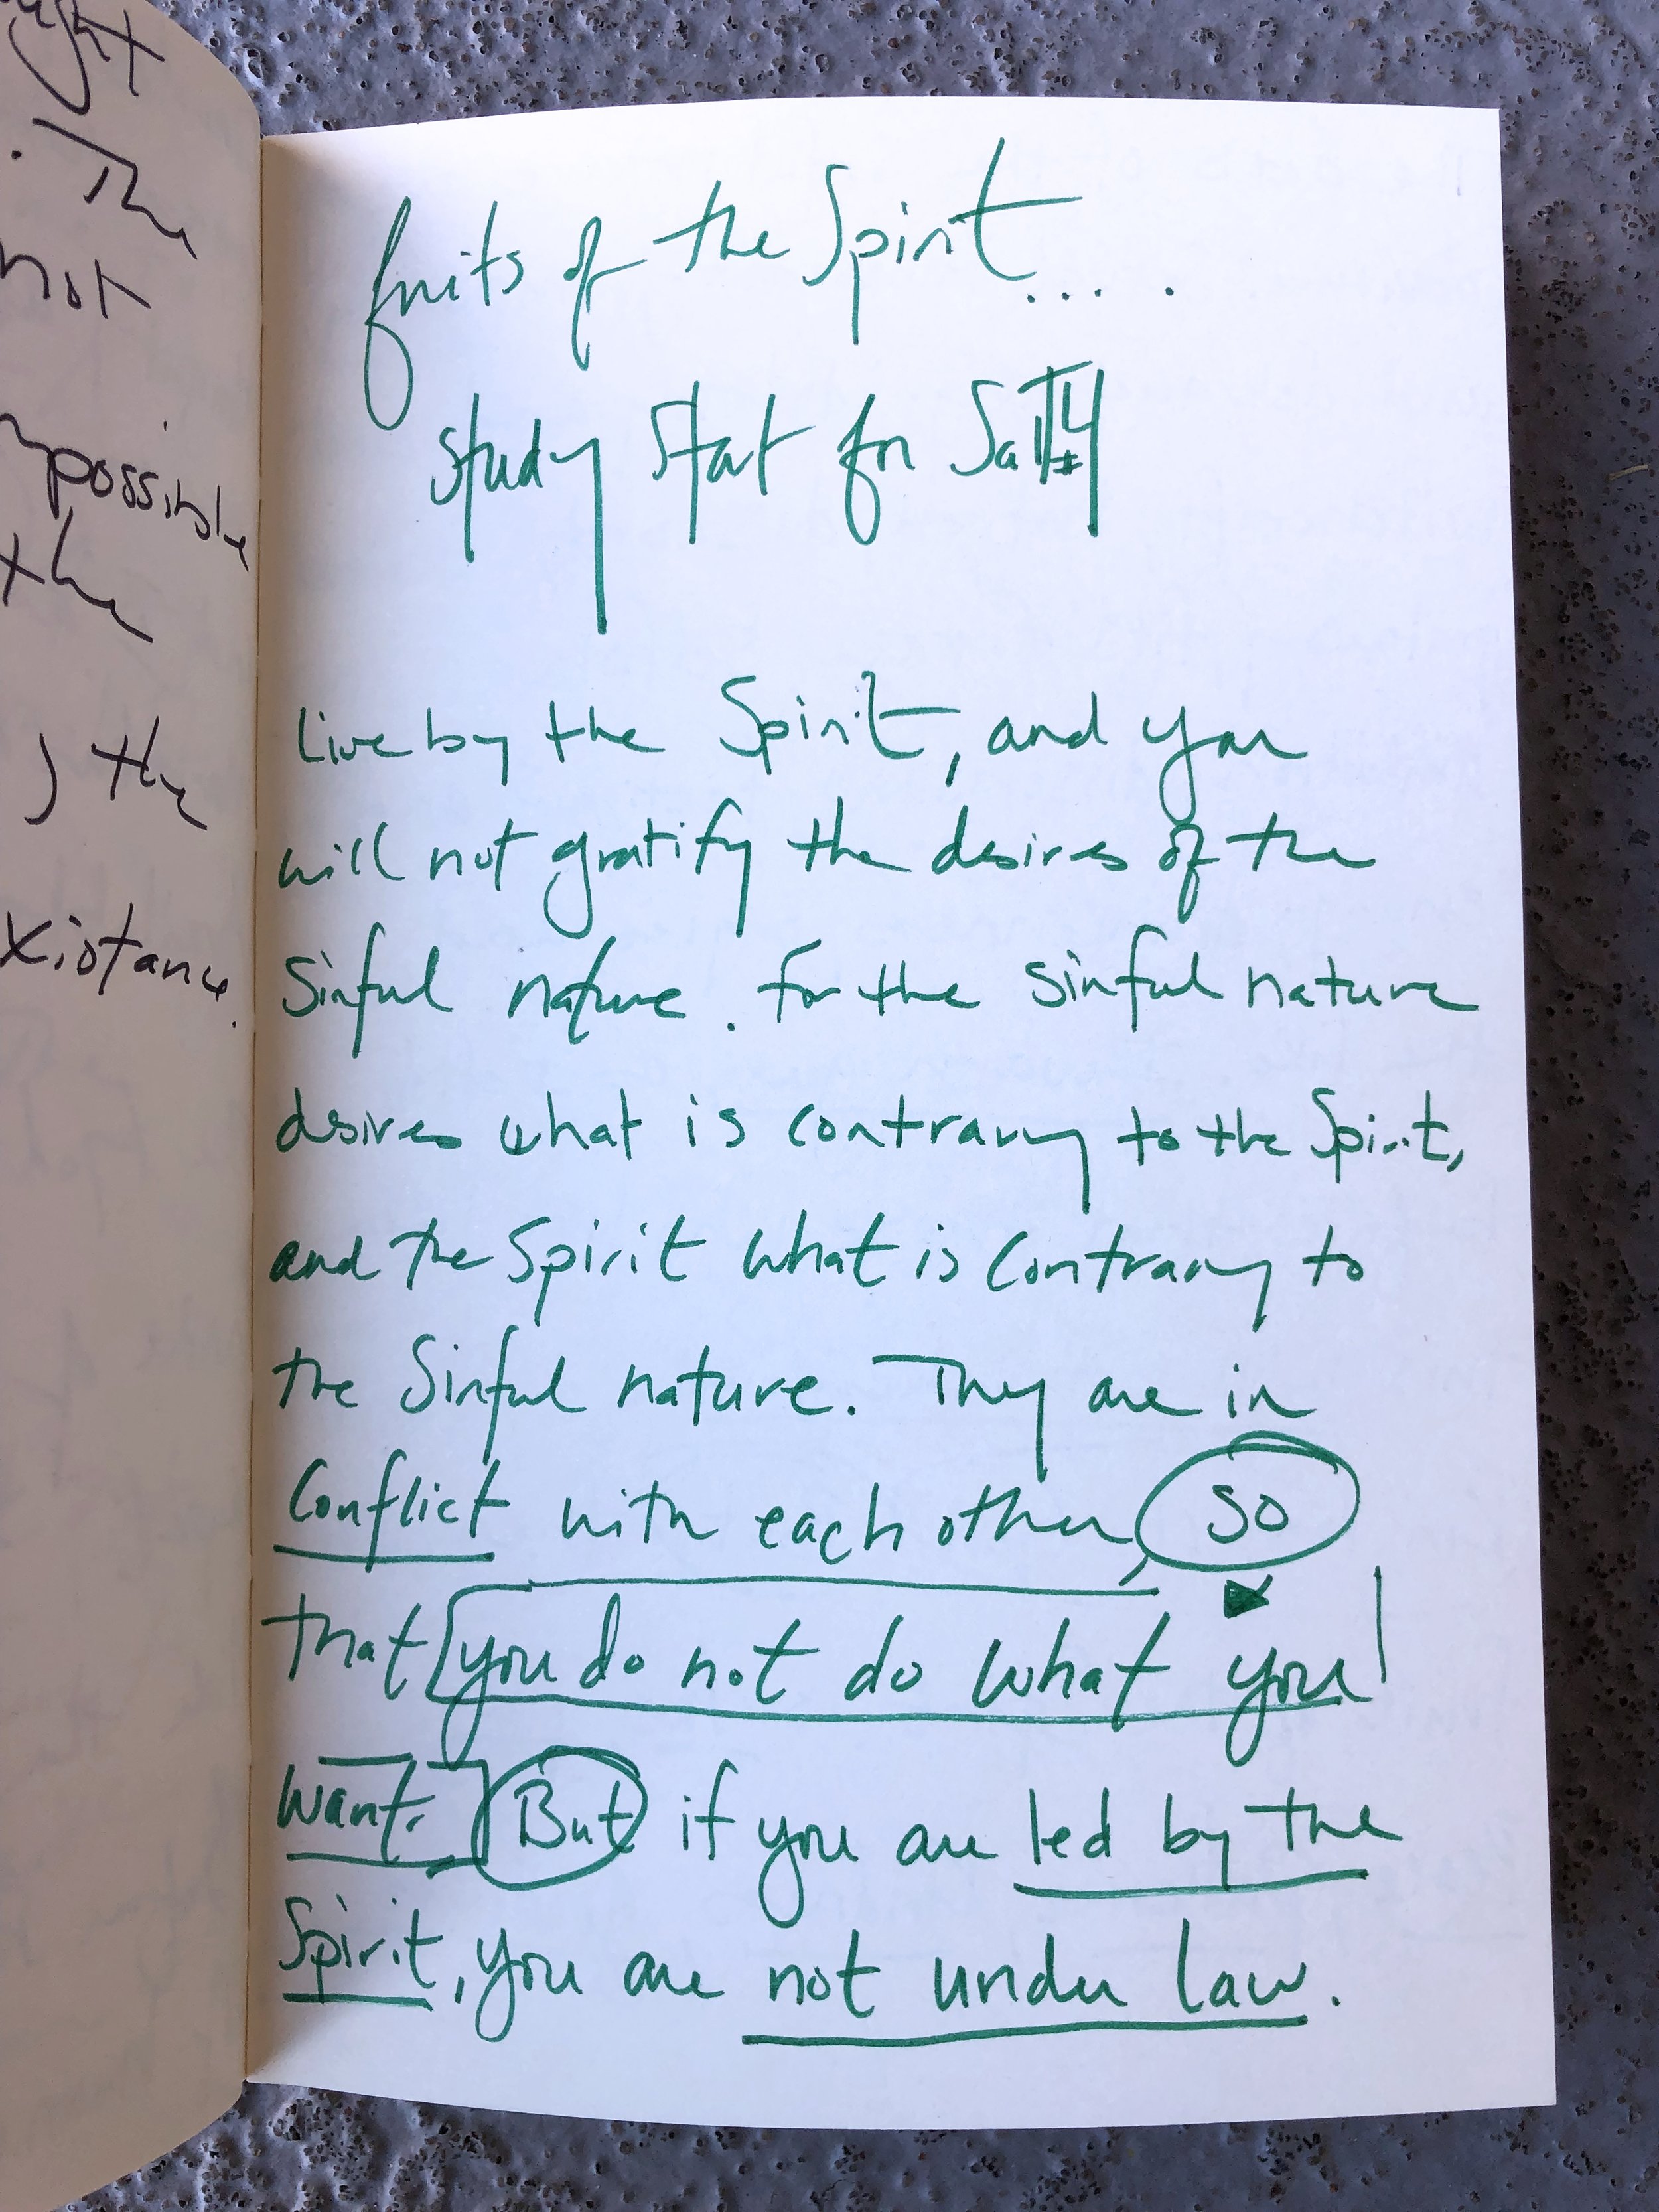 ught
. The
not
mpossible
the
) the
xistance.
fruits of the Spirit.... .
study Start for
Live by the Spirit, and you
will not gratify the desires of the
Sinful nature. For the sinful nature
desires what is contrary to the Spirit,
and the Spirit what is Contrary to
the Sinful nature. They are in
Conflict with each other, so
that you do not do what you
want. But if you are led by the
Spirit, you are not under law.